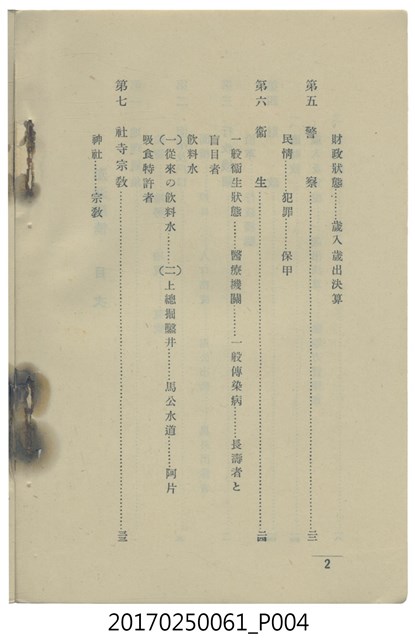 財政狀態……歲入歲出決算
第五 警察……………………………………二三
民情……犯罪……保甲
第六 衞生……………………………………二四
一般衞生狀態……醫療機關……一般傳染病……長壽者と
盲目者
飮料水
(一)從來の飮料水……(二)上總掘鑿井……馬公水道……阿片
吸食特許者
第七 社寺宗敎……………………………………三三
神社……宗敎
2
20170250061_P004